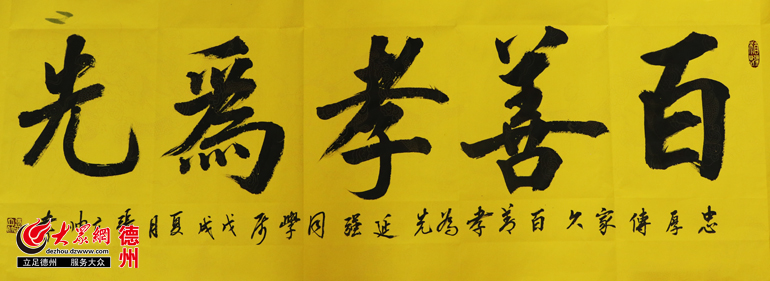 百善孝爲先
忠厚傳家久百善孝為先延强同學屬戊戌夏月張
大眾網 德州
dezhou.dzwww.com
立足德州 服务大众